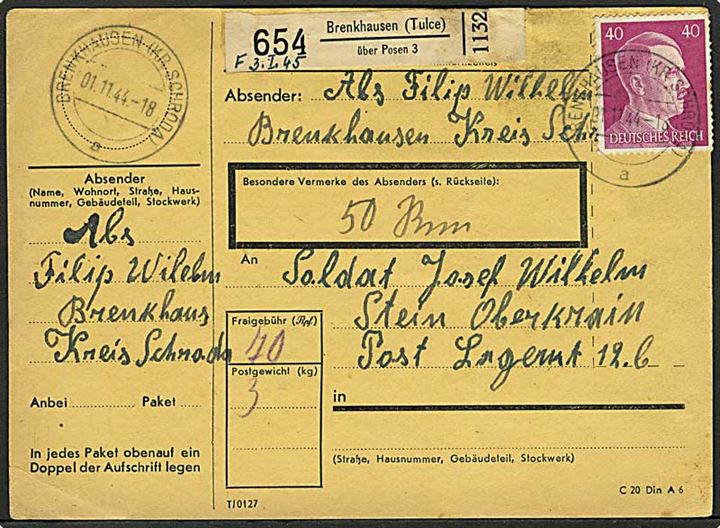 BRENKHAUSEN (KR. SCHRODA)
01.11.44.-18
a
654
Brenkhausen (Tulce)
über Posen 3
1132
F 3.I.45
40 40
DEUTSCHES REICH
Absender: Abs Filip Wilhelm
Brenkhausen Kreis Schr
a
Absender
(Name, Wohnort, Straße, Haus-
nummer, Gebäudeteil, Stockwerk)
Abs
Filip Wilelm
Brenkhaus
Kreis Schroda
Besondere Vermerke des Absenders (s. Rückseite):
50
An Soldat Josef Wilhelm
Stein Oberkrain
Post Lagernt 12.6
Freigebühr (Rpf)
40
Postgewicht (kg)
3
in
Anbei Paket
(Straße, Hausnummer, Gebäudeteil, Stockwerk)
In jedes Paket obenauf ein
Doppel der Aufschrift legen
T/0127
C 20 Din A 6